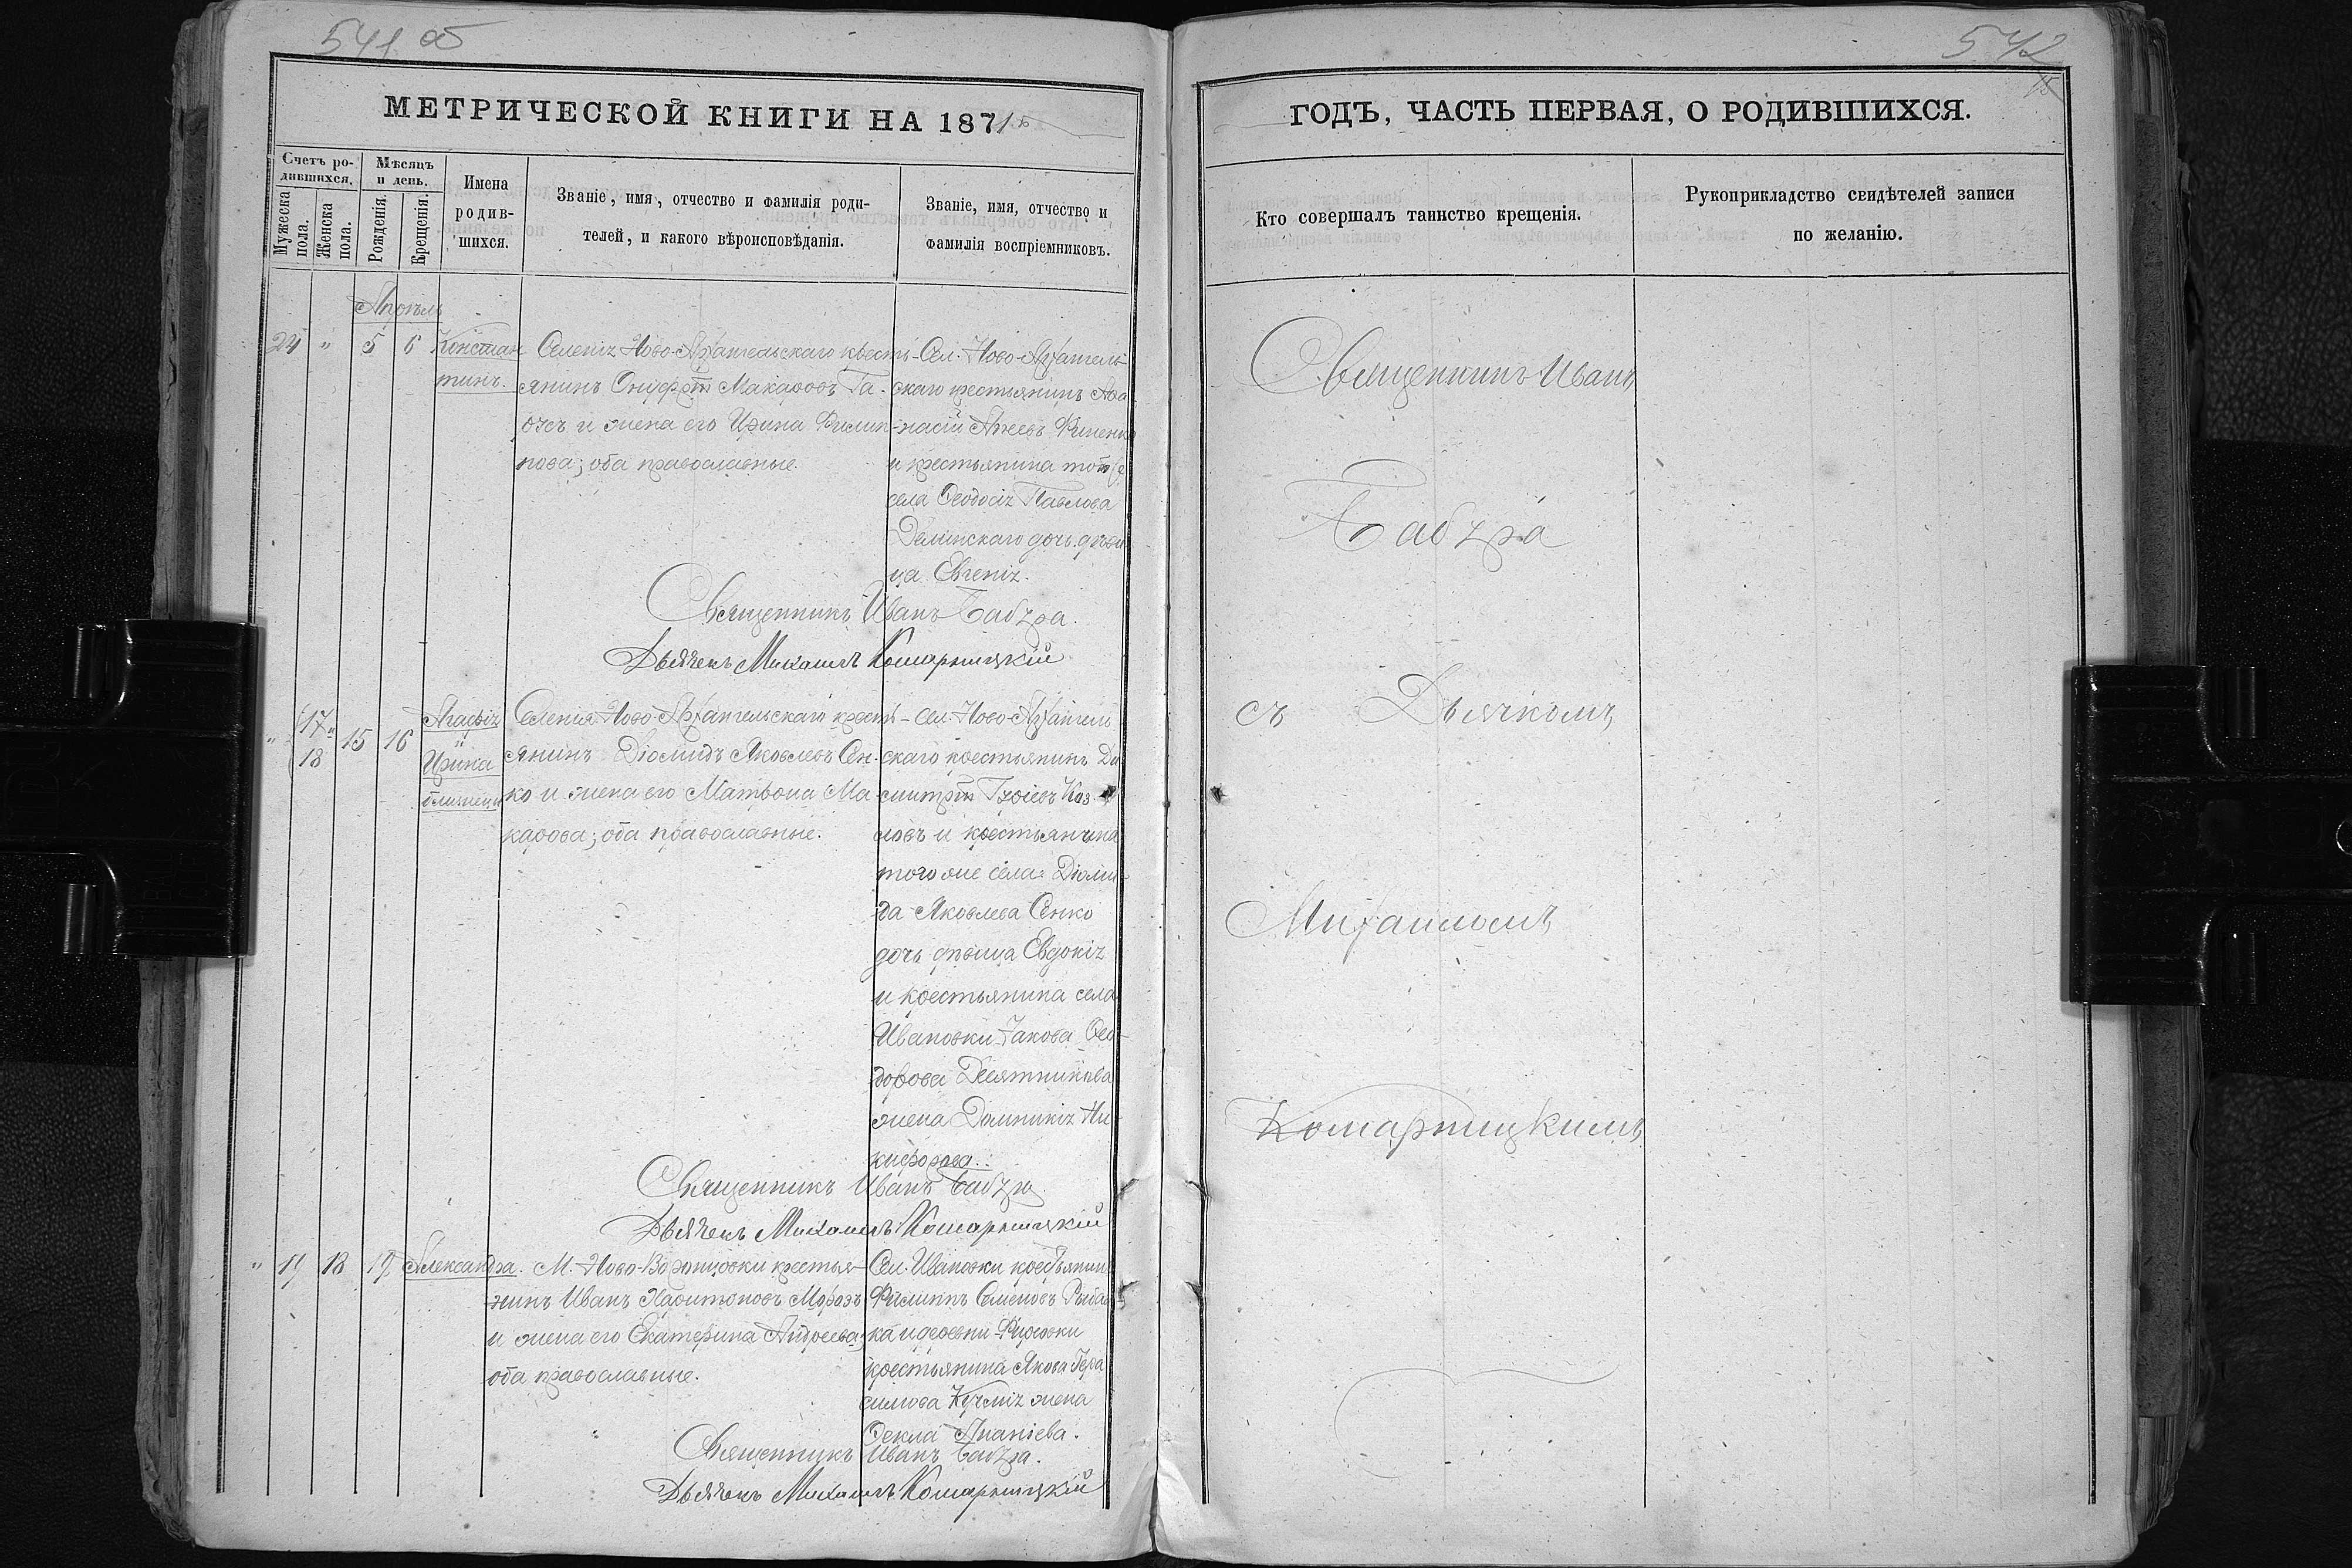 541 об
МЕТРИЧЕСКОЙ КНИГИ НА 1871й
Счетъ ро-
дившихся.
Мужеска пола.
Женска пола.
Мѣсяцъ
и день.
Рожденія.
Крещенія.
Имена
родив-
шихся.
Званіе, имя, отчество и фамилія роди-
телей, и какого вѣроисповѣданія.
Званіе, имя, отчество и
фамилія воспріемниковъ.
Апрѣль
24 " 5 6
Констан
тинъ.
Селенія Ново-Архангельскаго кресть-
янинъ Онуфрій Макаровъ Га-
и жена его Ирина Филип-
пова; оба православные.
Сел. Ново-Архангель
скаго крестьянинъ Аѳа
насій
и крестьянина того
села Ѳеодосія Павлова
дочь дѣви
ца Евгенія.
Священникъ Иванъ Бабура.
Дьячекъ Михаилъ Комарницкій
" 17 " 15 16
18
Агафія
и
Ирина
близнецы
Селенія Ново-Архангельскаго кресть-
янинъ Діомидъ Яковлевъ Сен-
ко и жена его Матрона Ма-
карова; оба православные.
Сел. Ново-Архангель
скаго крестьянинъ Ди
митрій Гурьевъ Коз-
ловъ и крестьянина
того же села Діоми-
да Яковлева Сенко
дочь дѣвица Евдокія
и крестьянина села
Ивановки Іакова Ѳео-
дорова Десятникова
жена Домникія Ни-
кифорова.
Священникъ Иванъ Бабура
Дьячекъ Михаилъ Комарницкій
" 19 18 19
Александра.
М. Ново-Воронцовки крестья-
нинъ Иванъ Харитоновъ Морозъ
и жена его Екатерина Андреева;
оба православные.
Сел. Ивановки крестьянин
Филиппъ Семеновъ Рыбал
ка и деревни Фирсовки
крестьянина Якова Гера
симова жена
Ѳекла Ананіева.
Священникъ Иванъ Бабура.
Дьячекъ Михаилъ Комарницкій
542
ГОДЪ, ЧАСТЬ ПЕРВАЯ, О РОДИВШИХСЯ.
Кто совершалъ таинство крещенія.
Рукоприкладство свидѣтелей записи
по желанію.
Священникъ Иванъ
Бабура
съ Дьячкомъ
Михаиломъ
Комарницкимъ